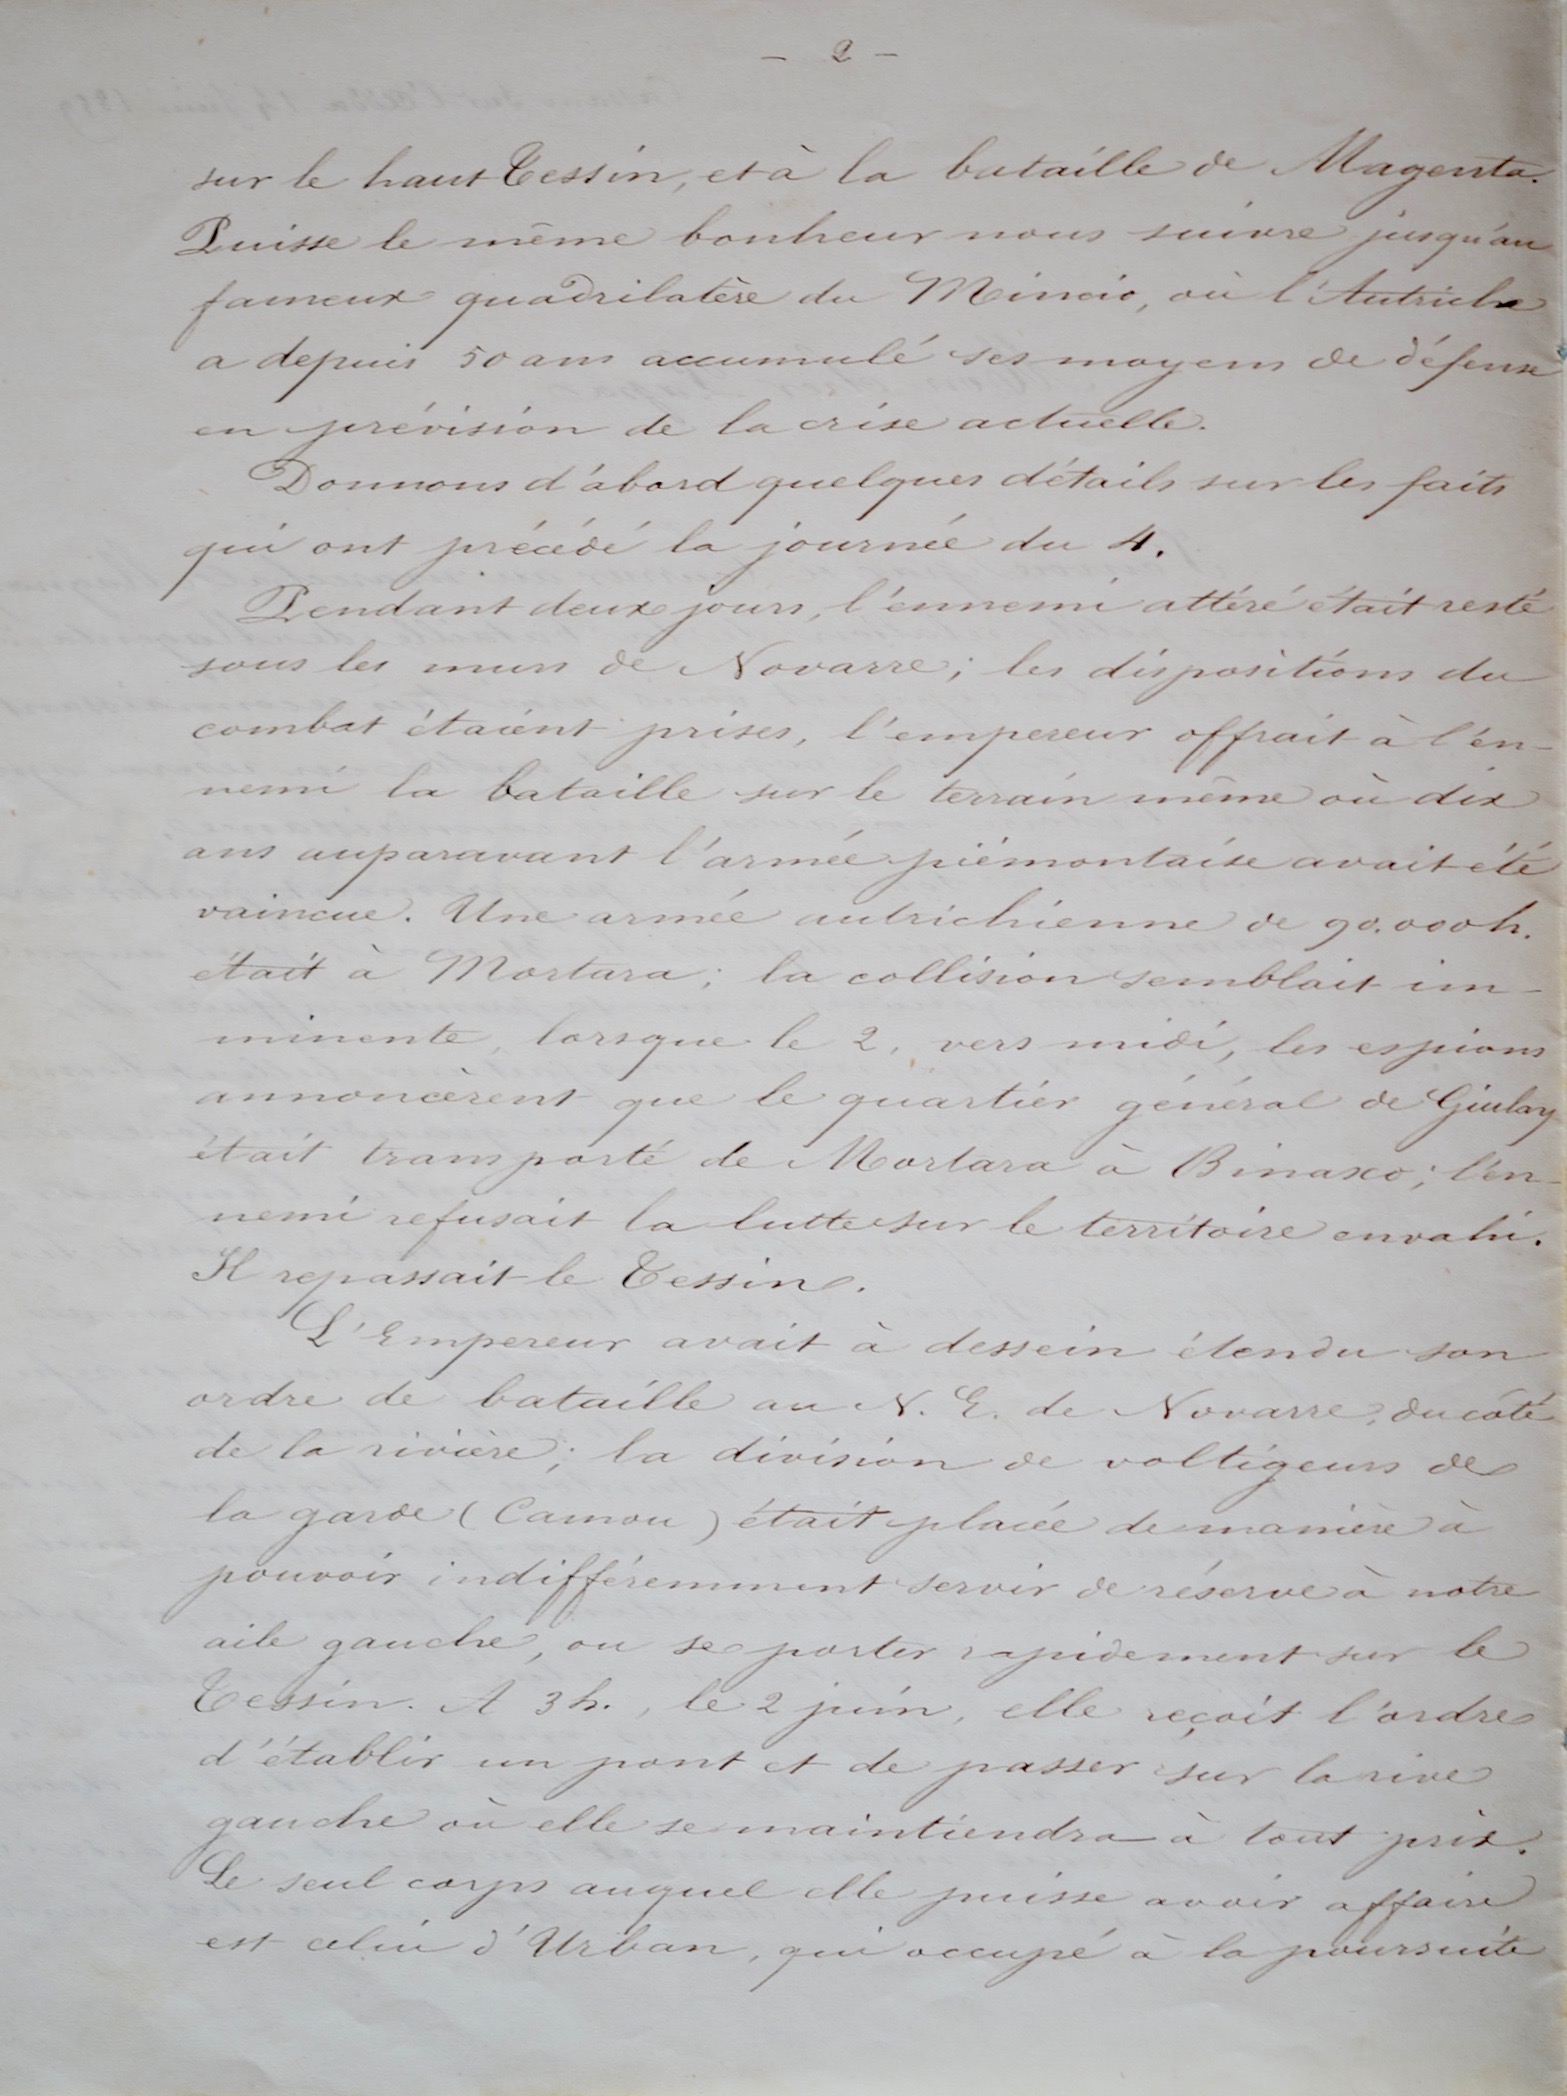 - 2 -
sur le haut Tessin, et à la bataille de Magenta.
Puisse le même bonheur nous suivre jusqu'au
fameux quadrilatère du Mincio, où l'Autriche
a depuis 50 ans accumulé ses moyens de défense
en prévision de la crise actuelle.
Donnons d'abord quelques détails sur les faits
qui ont précédé la journée du 4.
Pendant deux jours, l'ennemi attéré était resté
sous les murs de Novarre; les dispositions du
combat étaient prises, l'empereur offrait à l'en-
nemi la bataille sur le terrain même où dix
ans auparavant l'armée piémontaise avait été
vaincue. Une armée autrichienne de 90.000 h.
était à Mortara; la collision semblait im-
minente, lorsque le 2, vers midi, les espions
annoncèrent que le quartier général de Giulay
était transporté de Mortara à Binasco; l'en-
nemi refusait la lutte sur le territoire envahi.
Il repassait le Tessin.
L'Empereur avait à dessein étendu son
ordre de bataille au N. E. de Novarre, du côté
de la rivière; la division de voltigeurs de
la garde (Camou) était placée de manière à
pouvoir indifféremment servir de réserve à notre
aile gauche, ou se porter rapidement sur le
Tessin. A 3 h., le 2 juin, elle reçoit l'ordre
d'établir un pont et de passer sur la rive
gauche où elle se maintiendra à tout prix.
Le seul corps auquel elle puisse avoir affaire
est celui d'Urban, qui occupé à la poursuite